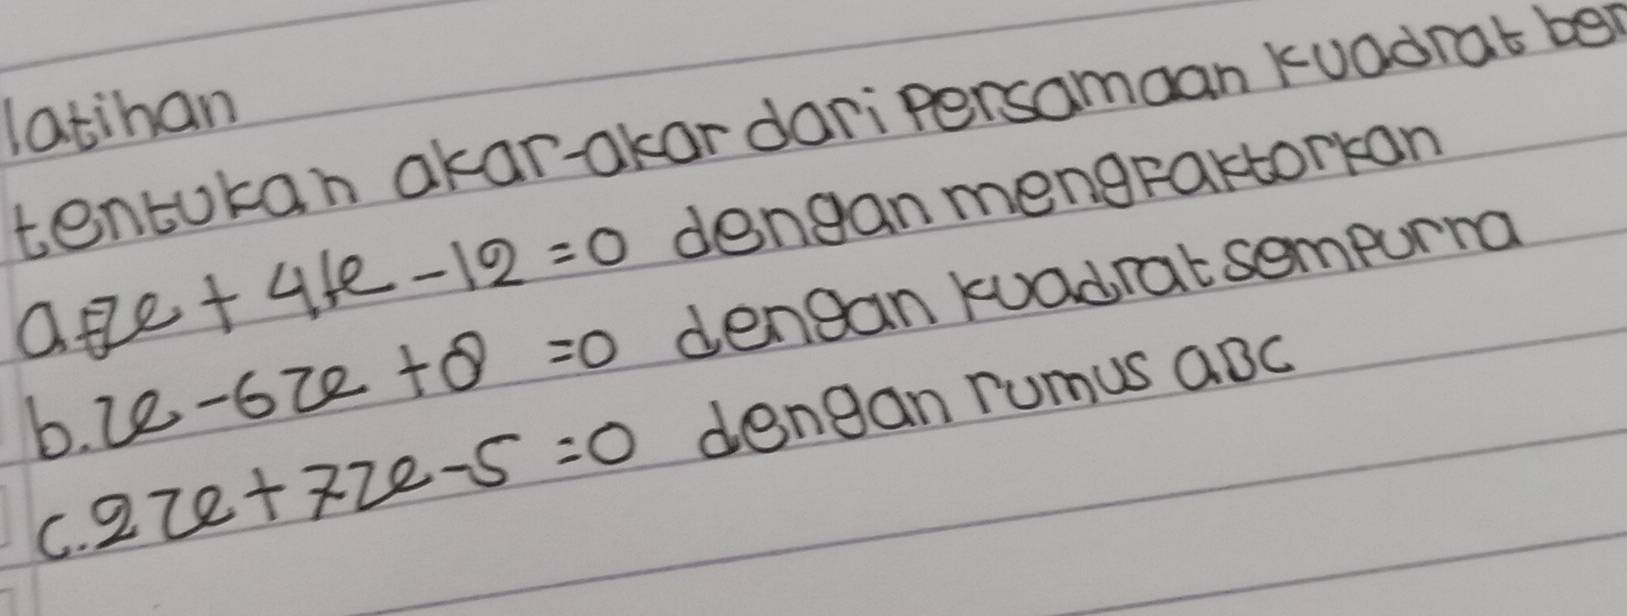 latihan
tentukan akar-akar dari persamaan kuadrat ber
a. x + 4x - 12 = 0 dengan mengfaktorkan
b. x - 6x + 8 = 0 dengan kuadrat sempurna
c. 2x + 7x - 5 = 0 dengan rumus aBC